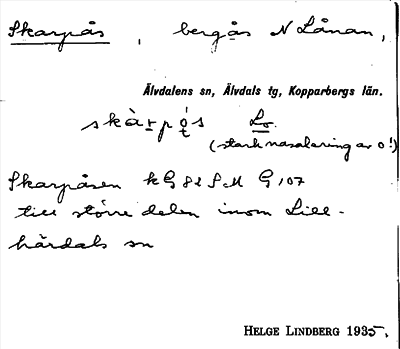 Skarpås, bergås N Lånan,
Älvdalens sn, Älvdals tg, Kopparbergs län.
skàrpó̱s Lo.
(stark nasalering av o!)
Skarpåsen kG 82 S.M G 107
till större delen inom Lill-
härdals sn
HELGE LINDBERG 1935.